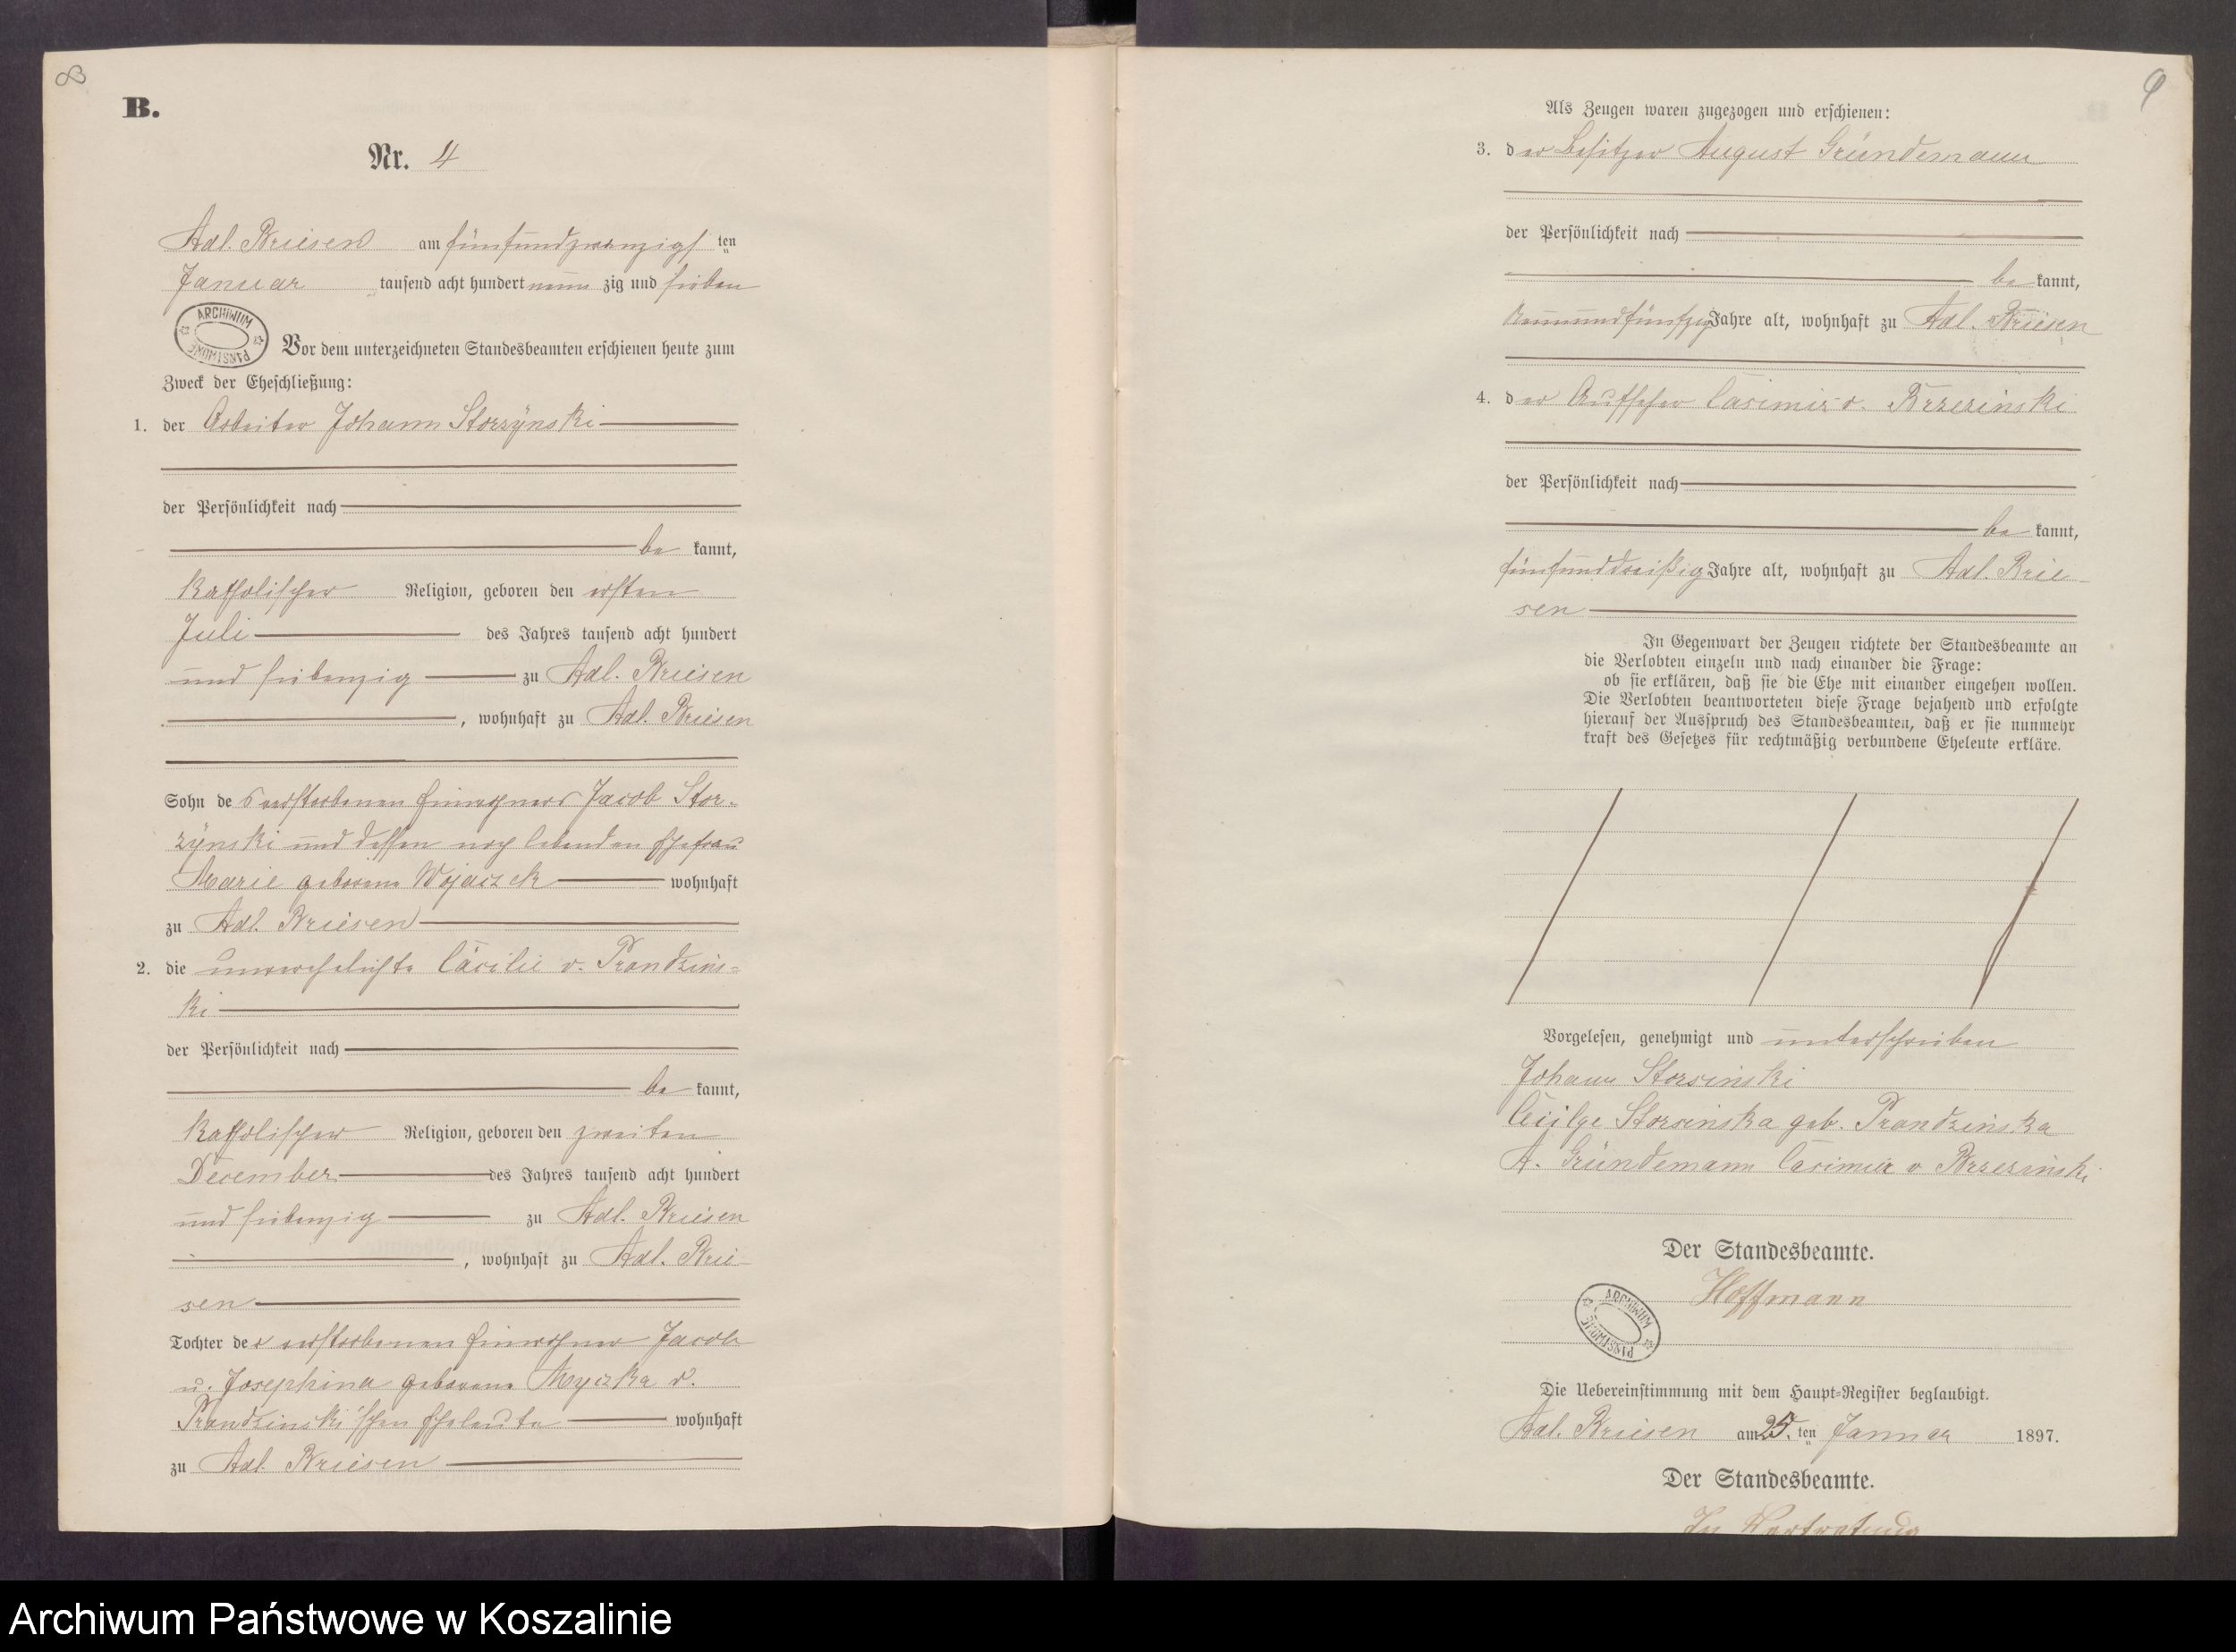 8
B.
Nr. 4
Adl. Briesen am fünfundzwanzigsten
Januar tausend acht hundert neunzig und sieben
ARCHIWUM PAŃSTWOWE
Vor dem unterzeichneten Standesbeamten erschienen heute zum
Zweck der Eheschließung:
1. der Arbeiter Johann Storzÿnski
der Persönlichkeit nach
bekannt,
katholischer Religion, geboren den ersten
Juli des Jahres tausend acht hundert
und siebenzig zu Adl. Briesen
, wohnhaft zu Adl. Briesen
Sohn des verstorbenen Einwohners Jacob Stor-
zÿnski und dessen noch lebenden Ehefrau
Marie geborene Wojaczek wohnhaft
zu Adl. Briesen
2. die unverehelichte Cäcilie v. Prondzins-
ki
der Persönlichkeit nach
bekannt,
katholischer Religion, geboren den zweiten
December des Jahres tausend acht hundert
und siebenzig zu Adl. Briesen
, wohnhaft zu Adl. Brie-
sen
Tochter der verstorbenen Einwohner Jacob
u. Josephina geborene Myczka v.
Prondzinski'schen Eheleute wohnhaft
zu Adl. Briesen
9
Als Zeugen waren zugezogen und erschienen:
3. der Besitzer August Gründemann
der Persönlichkeit nach
bekannt,
neunundfünfzig Jahre alt, wohnhaft zu Adl. Briesen
4. der Aufseher Casimir v. Brzezinski
der Persönlichkeit nach
bekannt,
fünfunddreißig Jahre alt, wohnhaft zu Adl. Brie-
sen
In Gegenwart der Zeugen richtete der Standesbeamte an
die Verlobten einzeln und nach einander die Frage:
ob sie erklären, daß sie die Ehe mit einander eingehen wollen.
Die Verlobten beantworteten diese Frage bejahend und erfolgte
hierauf der Ausspruch des Standesbeamten, daß er sie nunmehr
kraft des Gesetzes für rechtmäßig verbundene Eheleute erkläre.
Vorgelesen, genehmigt und unterschrieben
Johann Storsinski
Storsinska geb. Prondzinska
A. Gründemann Casimir v Brzezinski
Der Standesbeamte.
Hoffmann
ARCHIWUM PAŃSTWOWE
Die Uebereinstimmung mit dem Haupt-Register beglaubigt.
Adl. Briesen am 25. ten Januar 1897.
Der Standesbeamte.
In Vertretung
Archiwum Państwowe w Koszalinie